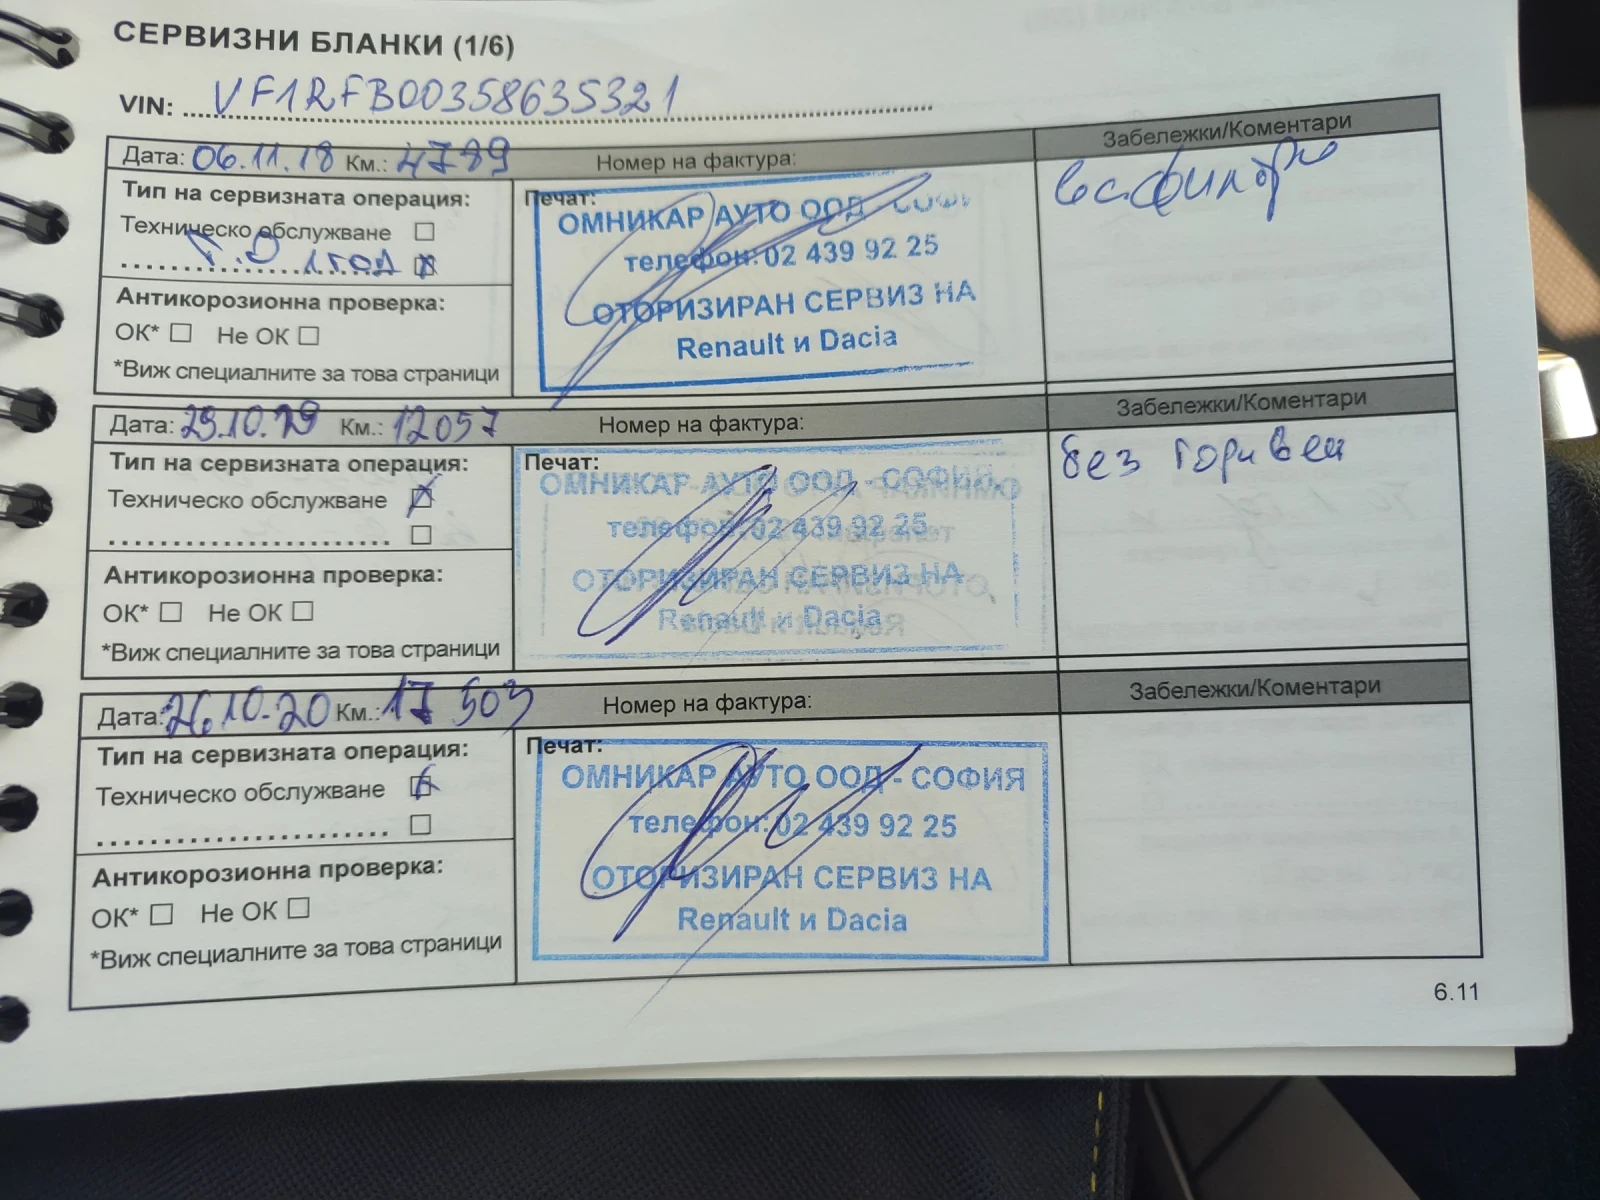 СЕРВИЗНИ БЛАНКИ (1/6)
VIN: VF1RFB00358635321
Дата: 06.11.18 Км.: 4789 Номер на фактура: Забележки/Коментари
Тип на сервизната операция:
Техническо обслужване
Т.О 1 год
Антикорозионна проверка:
ОК* Не ОК
*Виж специалните за това страници
Печат:
ОМНИКАР АУТО ООД - СОФИЯ
телефон: 02 439 92 25
ОТОРИЗИРАН СЕРВИЗ НА
Renault и Dacia
Дата: 29.10.19 Км.: 12057 Номер на фактура: Забележки/Коментари
Тип на сервизната операция:
Техническо обслужване
Антикорозионна проверка:
ОК* Не ОК
*Виж специалните за това страници
Печат:
ОМНИКАР АУТО ООД - СОФИЯ
телефон: 02 439 92 25
ОТОРИЗИРАН СЕРВИЗ НА
Renault и Dacia
без горивен
Дата: 26.10.20 Км.: 17 503 Номер на фактура: Забележки/Коментари
Тип на сервизната операция:
Техническо обслужване
Антикорозионна проверка:
ОК* Не ОК
*Виж специалните за това страници
Печат:
ОМНИКАР АУТО ООД - СОФИЯ
телефон: 02 439 92 25
ОТОРИЗИРАН СЕРВИЗ НА
Renault и Dacia
6.11